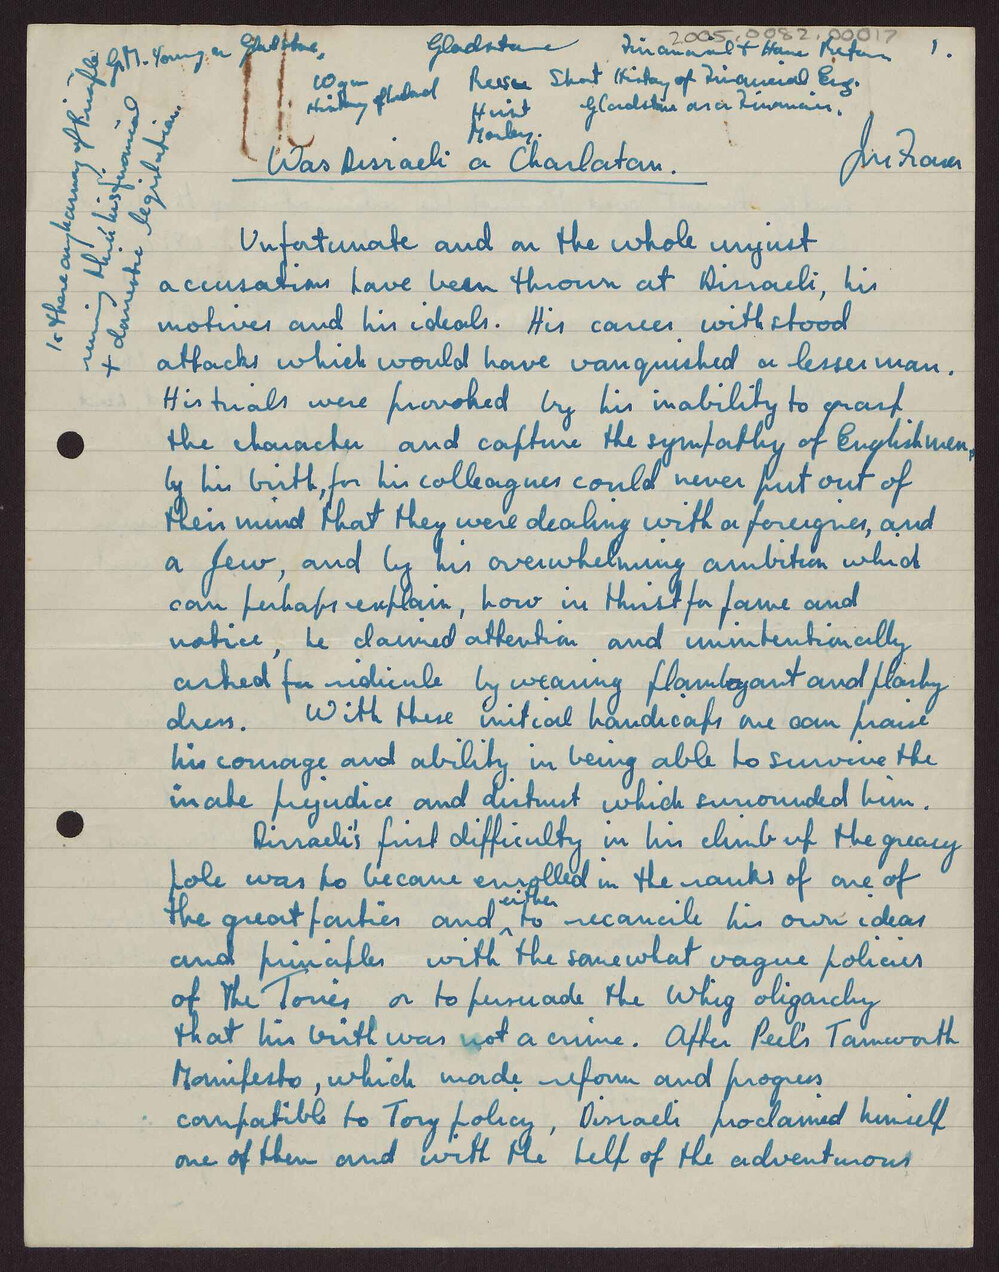 G.M. Young on Gladstone.
Gladstone Financial + Home Reform
2005.0082.00017
1.
History of Ireland
Reese Short History of Financial Eng.
Hirst Gladstone as a Financier.
Morley.
Jim Fraser
Is there any harmony of Principle
running thro' his financial
+ domestic legislation.
Was Disraeli a Charlatan.
Unfortunate and on the whole unjust
accusations have been thrown at Disraeli, his
motives and his ideals. His career withstood
attacks which would have vanquished a lesser man.
His trials were provoked by his inability to grasp
the character and capture the sympathy of Englishmen,
by his birth, for his colleagues could never put out of
their mind that they were dealing with a foreigner, and
a Jew, and by his overwhelming ambition which
can perhaps explain, how in thirst for fame and
notice, he claimed attention and unintentionally
asked for ridicule by wearing flamboyant and flashy
dress. With these initial handicaps one can praise
his courage and ability in being able to survive the
inate prejudice and distrust which surrounded him.
Disraeli's first difficulty in his climb up the greasy
pole was to become enrolled in the ranks of one of
the great parties and either to reconcile his own ideas
and principles with the somewhat vague policies
of the Tories or to persuade the Whig oligarchy
that his birth was not a crime. After Peel's Tamworth
Manifesto, which made reform and progress
compatible to Tory policy, Disraeli proclaimed himself
one of them and with the help of the adventurous